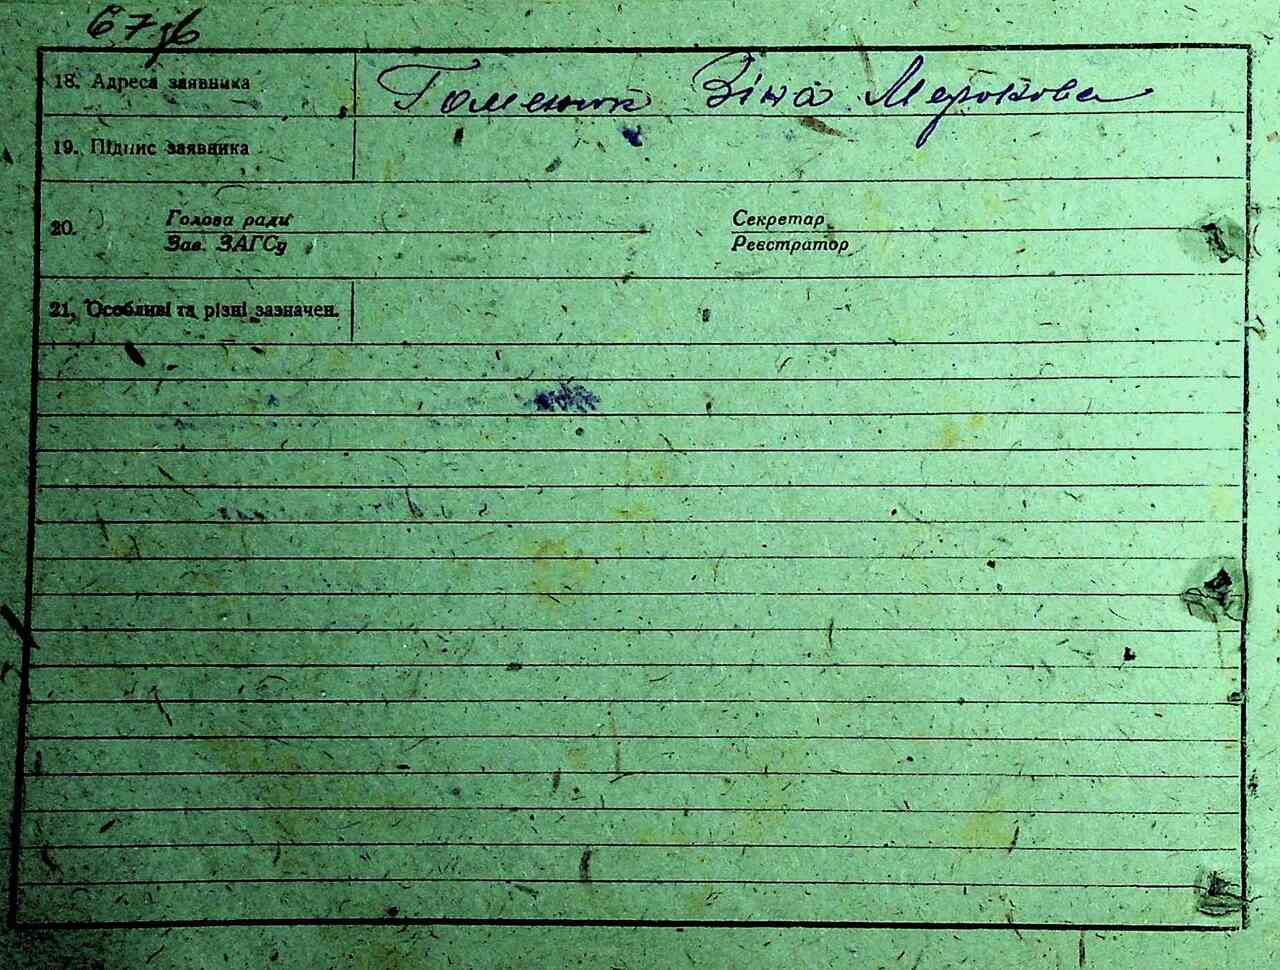 67зб
18. Адреса заявника Гоменюк Зіна Меркова
19. Підпис заявника
20. Голова ради Секретар
Зав. ЗАГСу Реєстратор
21. Особливі та різні зазначен.